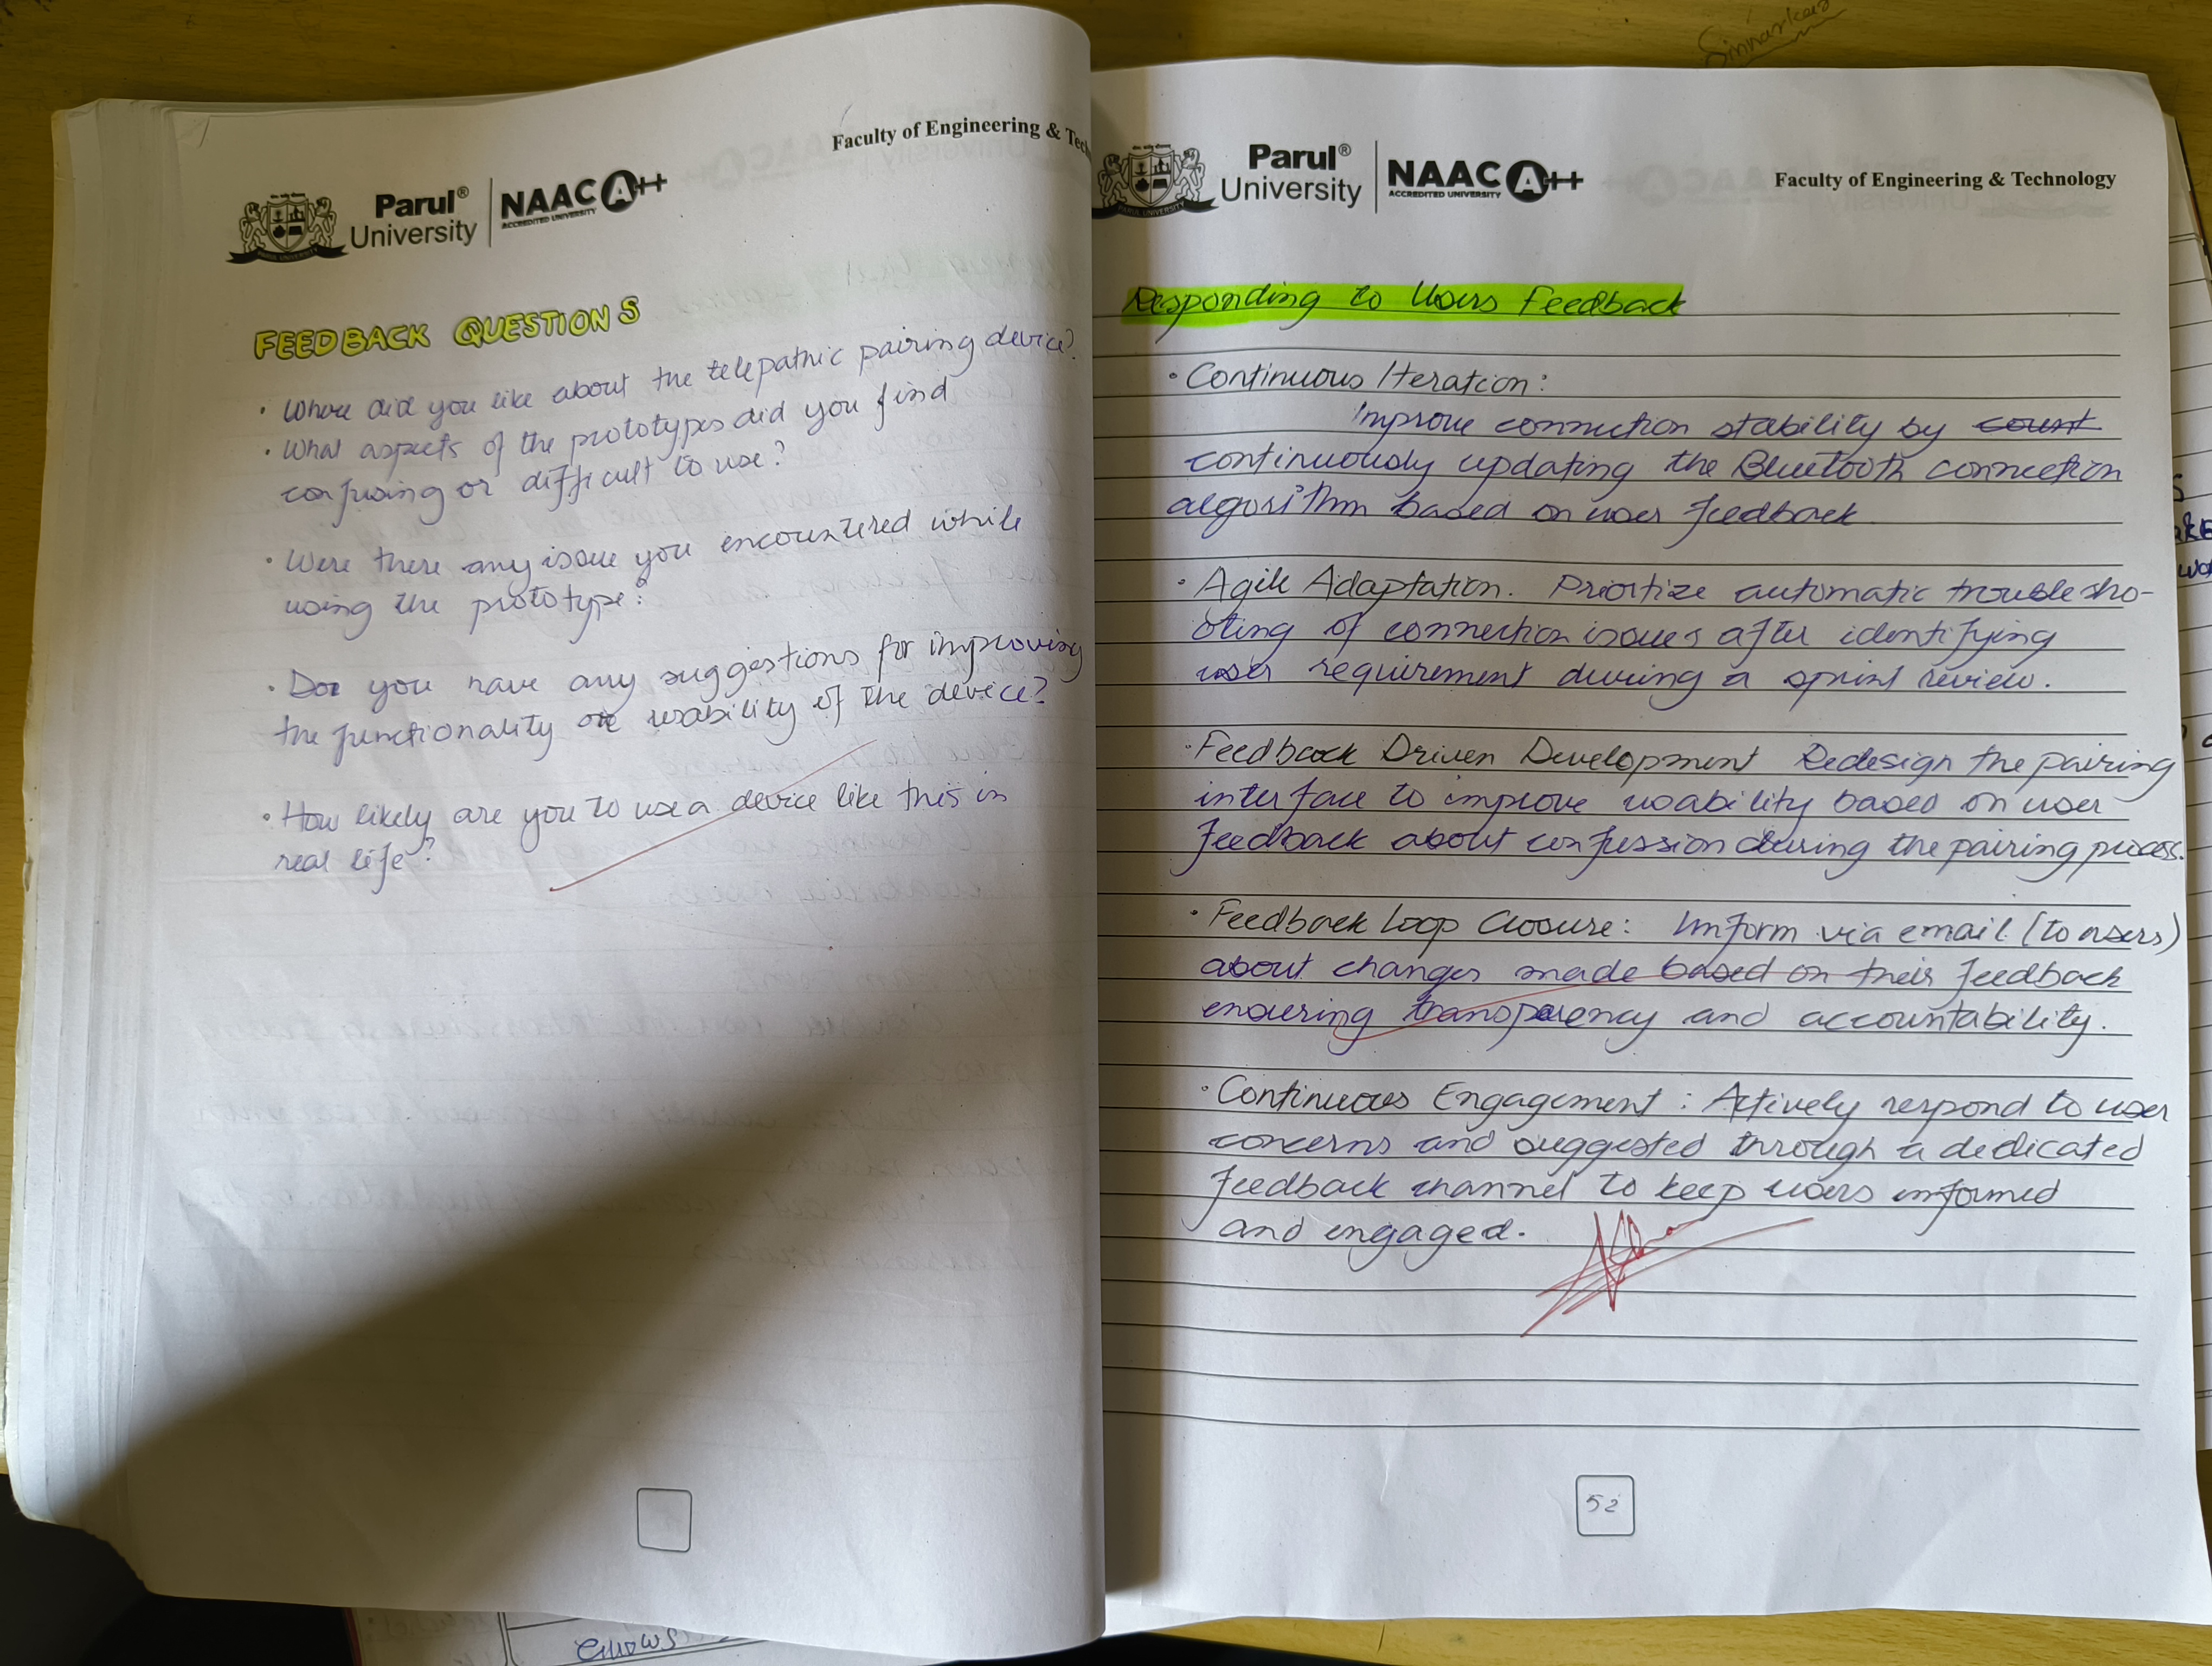 Sinnarkar
Faculty of Engineering & Tech
Parul®
University
NAAC A++
ACCREDITED UNIVERSITY
PARUL UNIVERSITY
FEEDBACK QUESTIONS
• Whave did you like about the telepathic pairing device?
• What aspects of the prototypes did you find
confusing or difficult to use?
• Were there any issue you encountered while
using the prototype?
• Do you have any suggestions for improving
the functionality or usability of the device?
• How likely are you to use a device like this in
real life?
Parul®
University
NAAC A++
ACCREDITED UNIVERSITY
PARUL UNIVERSITY
Faculty of Engineering & Technology
Responding to Users Feedback
• Continuous Iteration:
Improve connection stability by count
continuously updating the Bluetooth connection
algorithm based on user feedback
• Agile Adaptation. Prioritize automatic troublesho-
oting of connection issues after identifying
user requirement during a sprint review.
• Feedback Driven Development Redesign the pairing
interface to improve usability based on user
feedback about confussion during the pairing process.
• Feedback Loop Closure: Imform via email (to users)
about changes made based on their feedback
ensuring transparency and accountability.
• Continuous Engagement: Actively respond to user
concerns and suggested through a dedicated
feedback channel to keep users informed
and engaged.
52